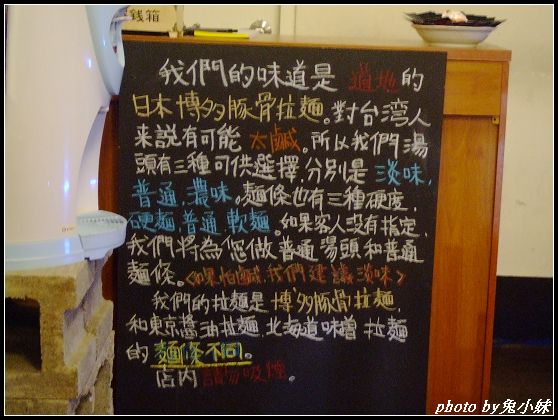 錢箱
我們的味道是 道地的
日本博多豚骨拉麵。對台湾人
来説有可能 太鹹。所以我們湯
頭有三種可供選擇，分別是 淡味，
普通，濃味。麵條也有三種硬度，
硬麵，普通，軟麵。如果客人没有指定，
我們將為您做普通湯頭和普通
麵條。<如果怕鹹，我們建議淡味>
我們的拉麵是 博多豚骨拉麵
和東京醬油拉麵，北海道味噌 拉麵
的 麵條不同。
店内 請勿吸煙。
photo by 兔小妹